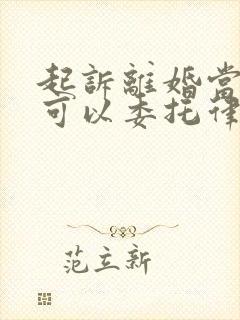 起訴離婚當
可以委托律
范立新